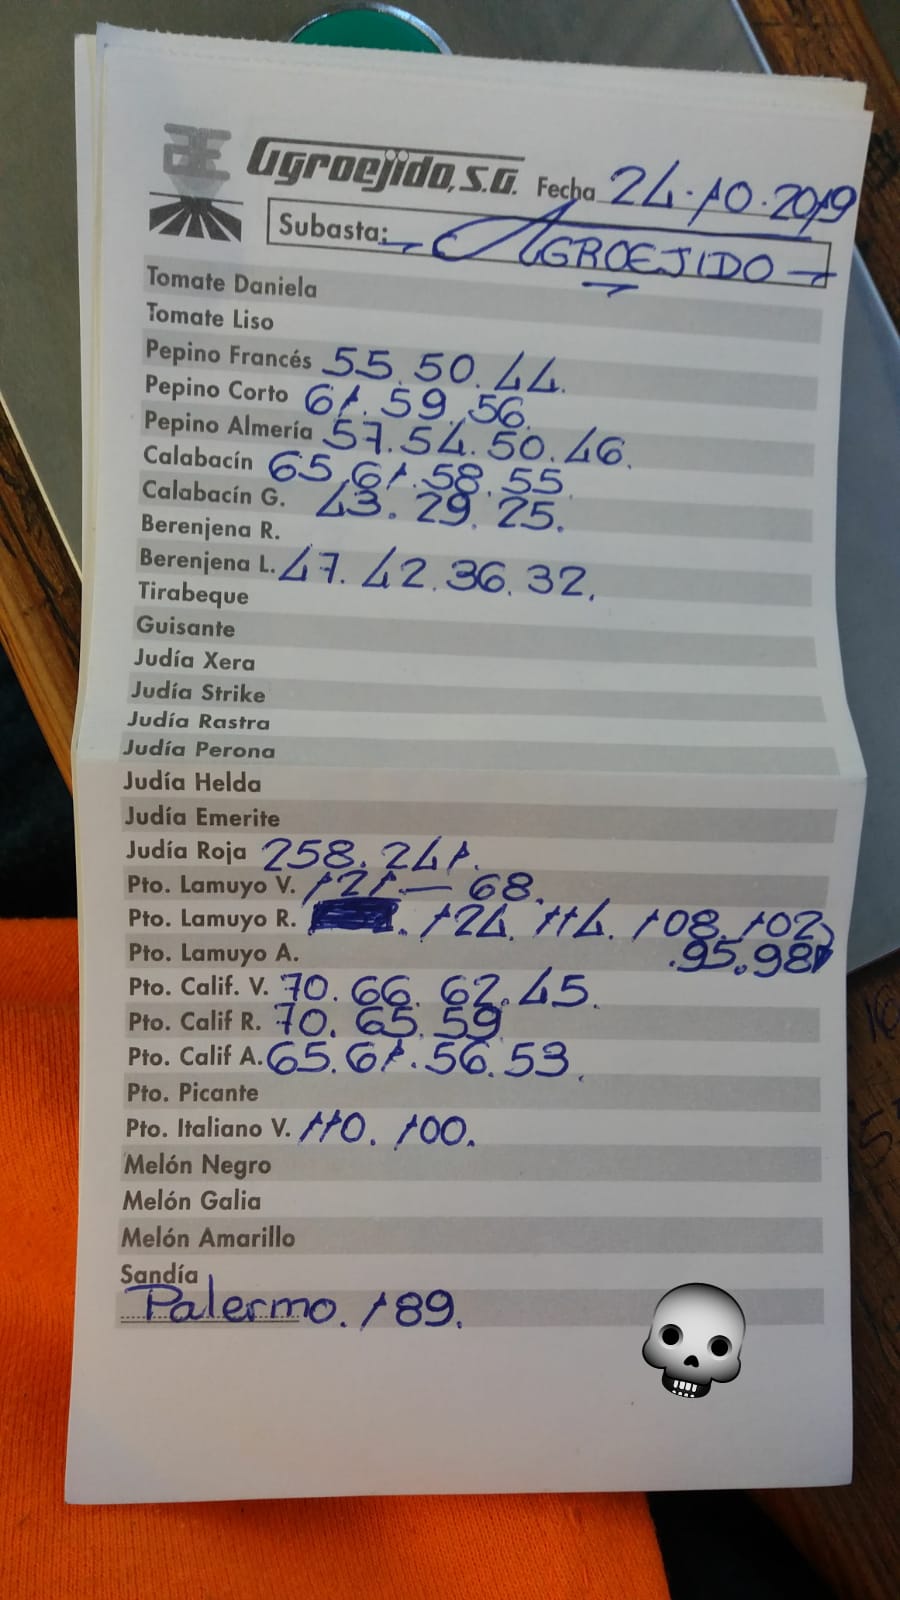 Agroejido, S.A. Fecha 24.10.2019
Subasta: AGROEJIDO
Tomate Daniela
Tomate Liso
Pepino Francés 55.50.44.
Pepino Corto 61.59.56.
Pepino Almería 57.54.50.46.
Calabacín 65.61.58.55.
Calabacín G. 43.29.25.
Berenjena R.
Berenjena L. 47.42.36.32.
Tirabeque
Guisante
Judía Xera
Judía Strike
Judía Rastra
Judía Perona
Judía Helda
Judía Emerite
Judía Roja 258.241.
Pto. Lamuyo V. 121 — 68.
Pto. Lamuyo R. . 124. 114. 108. 102
.95.98
Pto. Lamuyo A.
Pto. Calif. V. 70.66.62.45.
Pto. Calif R. 70.65.59
Pto. Calif A. 65.61.56.53.
Pto. Picante
Pto. Italiano V. 110. 100.
Melón Negro
Melón Galia
Melón Amarillo
Sandía
Palermo. 189.